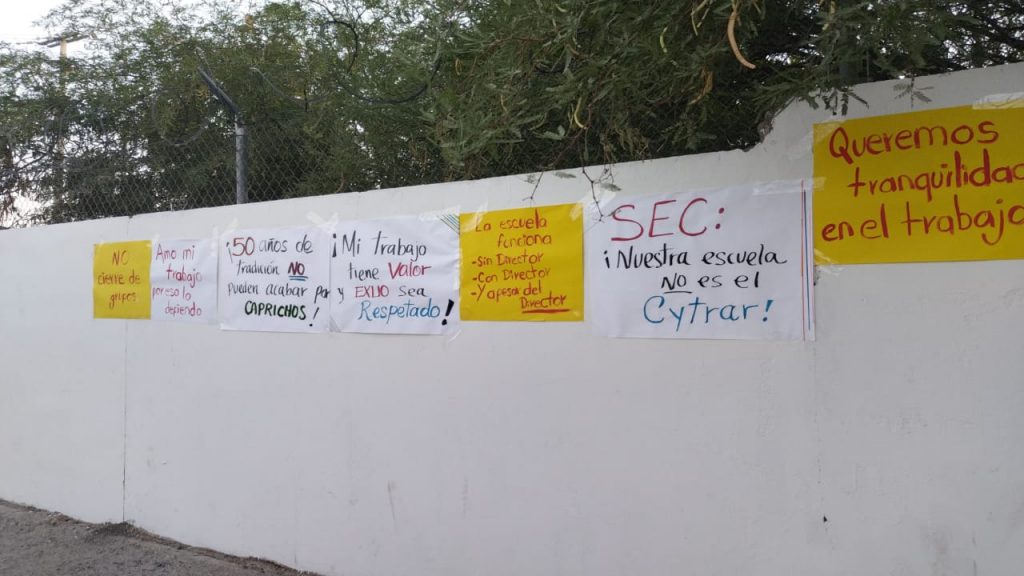 NO
cierre de
grupos
Amo mi
trabajo
por eso lo
defiendo
¡50 años de
tradición NO
pueden acabar por
CAPRICHOS!
¡Mi trabajo
tiene Valor
y EXIJO sea
Respetado!
La escuela
funciona
-Sin Director
-Con Director
-Y apesar del
Director
SEC:
¡Nuestra escuela
NO es el
Cytrar!
Queremos
tranquilidad
en el trabajo